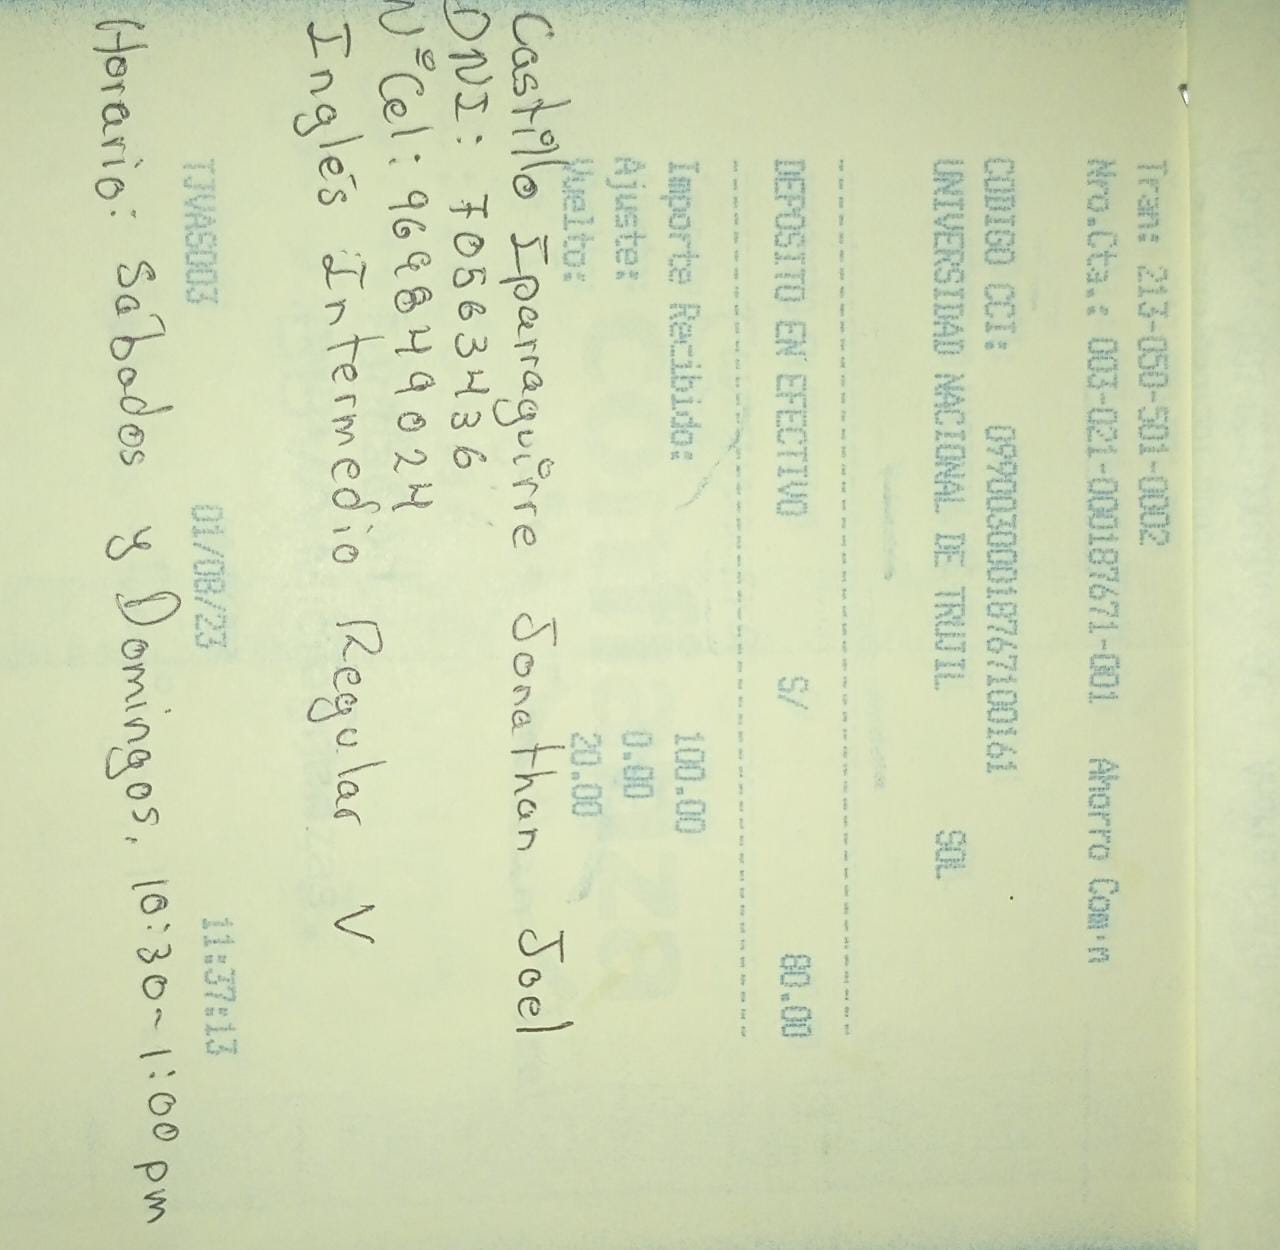 Tran: 213-050-501-0002
Nro.Cta.: 003-021-000187671-001 Ahorro Com·n
CODIGO CCI: 09900300018767100161
UNIVERSIDAD NACIONAL DE TRUJIL SOL
DEPOSITO EN EFECTIVO S/ 80.00
Importe Recibido: 100.00
Ajuste: 0.00
Vuelto: 20.00
Castillo Iparraguirre Jonathan Joel
DNI: 70563436
N° Cel: 969849024
Inglés Intermedio Regular V
TJVAS003 01/08/23 11:37:13
Horario: Sábados y Domingos, 10:30-1:00 pm